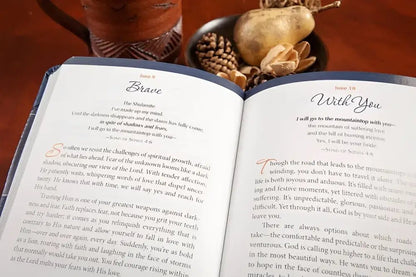 June 9
Brave
The Shulamite
I've made up my mind.
Until the darkness disappears and the dawn has fully come,
in spite of shadows and fears,
I will go to the mountaintop with you—
—Song of Songs 4:6
So often we resist the challenges of spiritual growth, afraid
of what lies ahead. Fear of the unknown looms like a dark
shadow, obscuring our view of the Lord. With tender affection,
He patiently waits, whispering words of love that dispel uncer-
tainty. He knows that with time, we will say yes and reach for
His hand.
Trusting Him is one of your greatest weapons against dark-
ness and fear. Faith replaces fear, not because you grit your teeth
and try harder; it comes as you relinquish everything that is
contrary to His nature and allow yourself to fall in love with
Him—over and over again, every day. Suddenly, you are as bold
as a lion, roaring with faith and laughing in the face of storms
that normally would take you out. You feel courage rising within
as the Lord fills your fears with His love.
June 10
With You
I will go to the mountaintop with you—
the mountain of suffering love
and the hill of burning incense.
Yes, I will be your bride.
—Song of Songs 4:6
Though the road that leads to the mountaintop
winding, you don't have to travel it alone. The
is both joyous and arduous. It's filled with
ing and festive moments, yet littered with obstacles
suffering. It's unpredictable, glorious, passionate,
difficult. Yet through it all, God is by your side
leave you.
There are always options about which road
take—the comfortable and predictable or the
venturous. God is calling you higher to a life that
in the most beautiful ways. He wants you to
hope, to reach for
miracles to